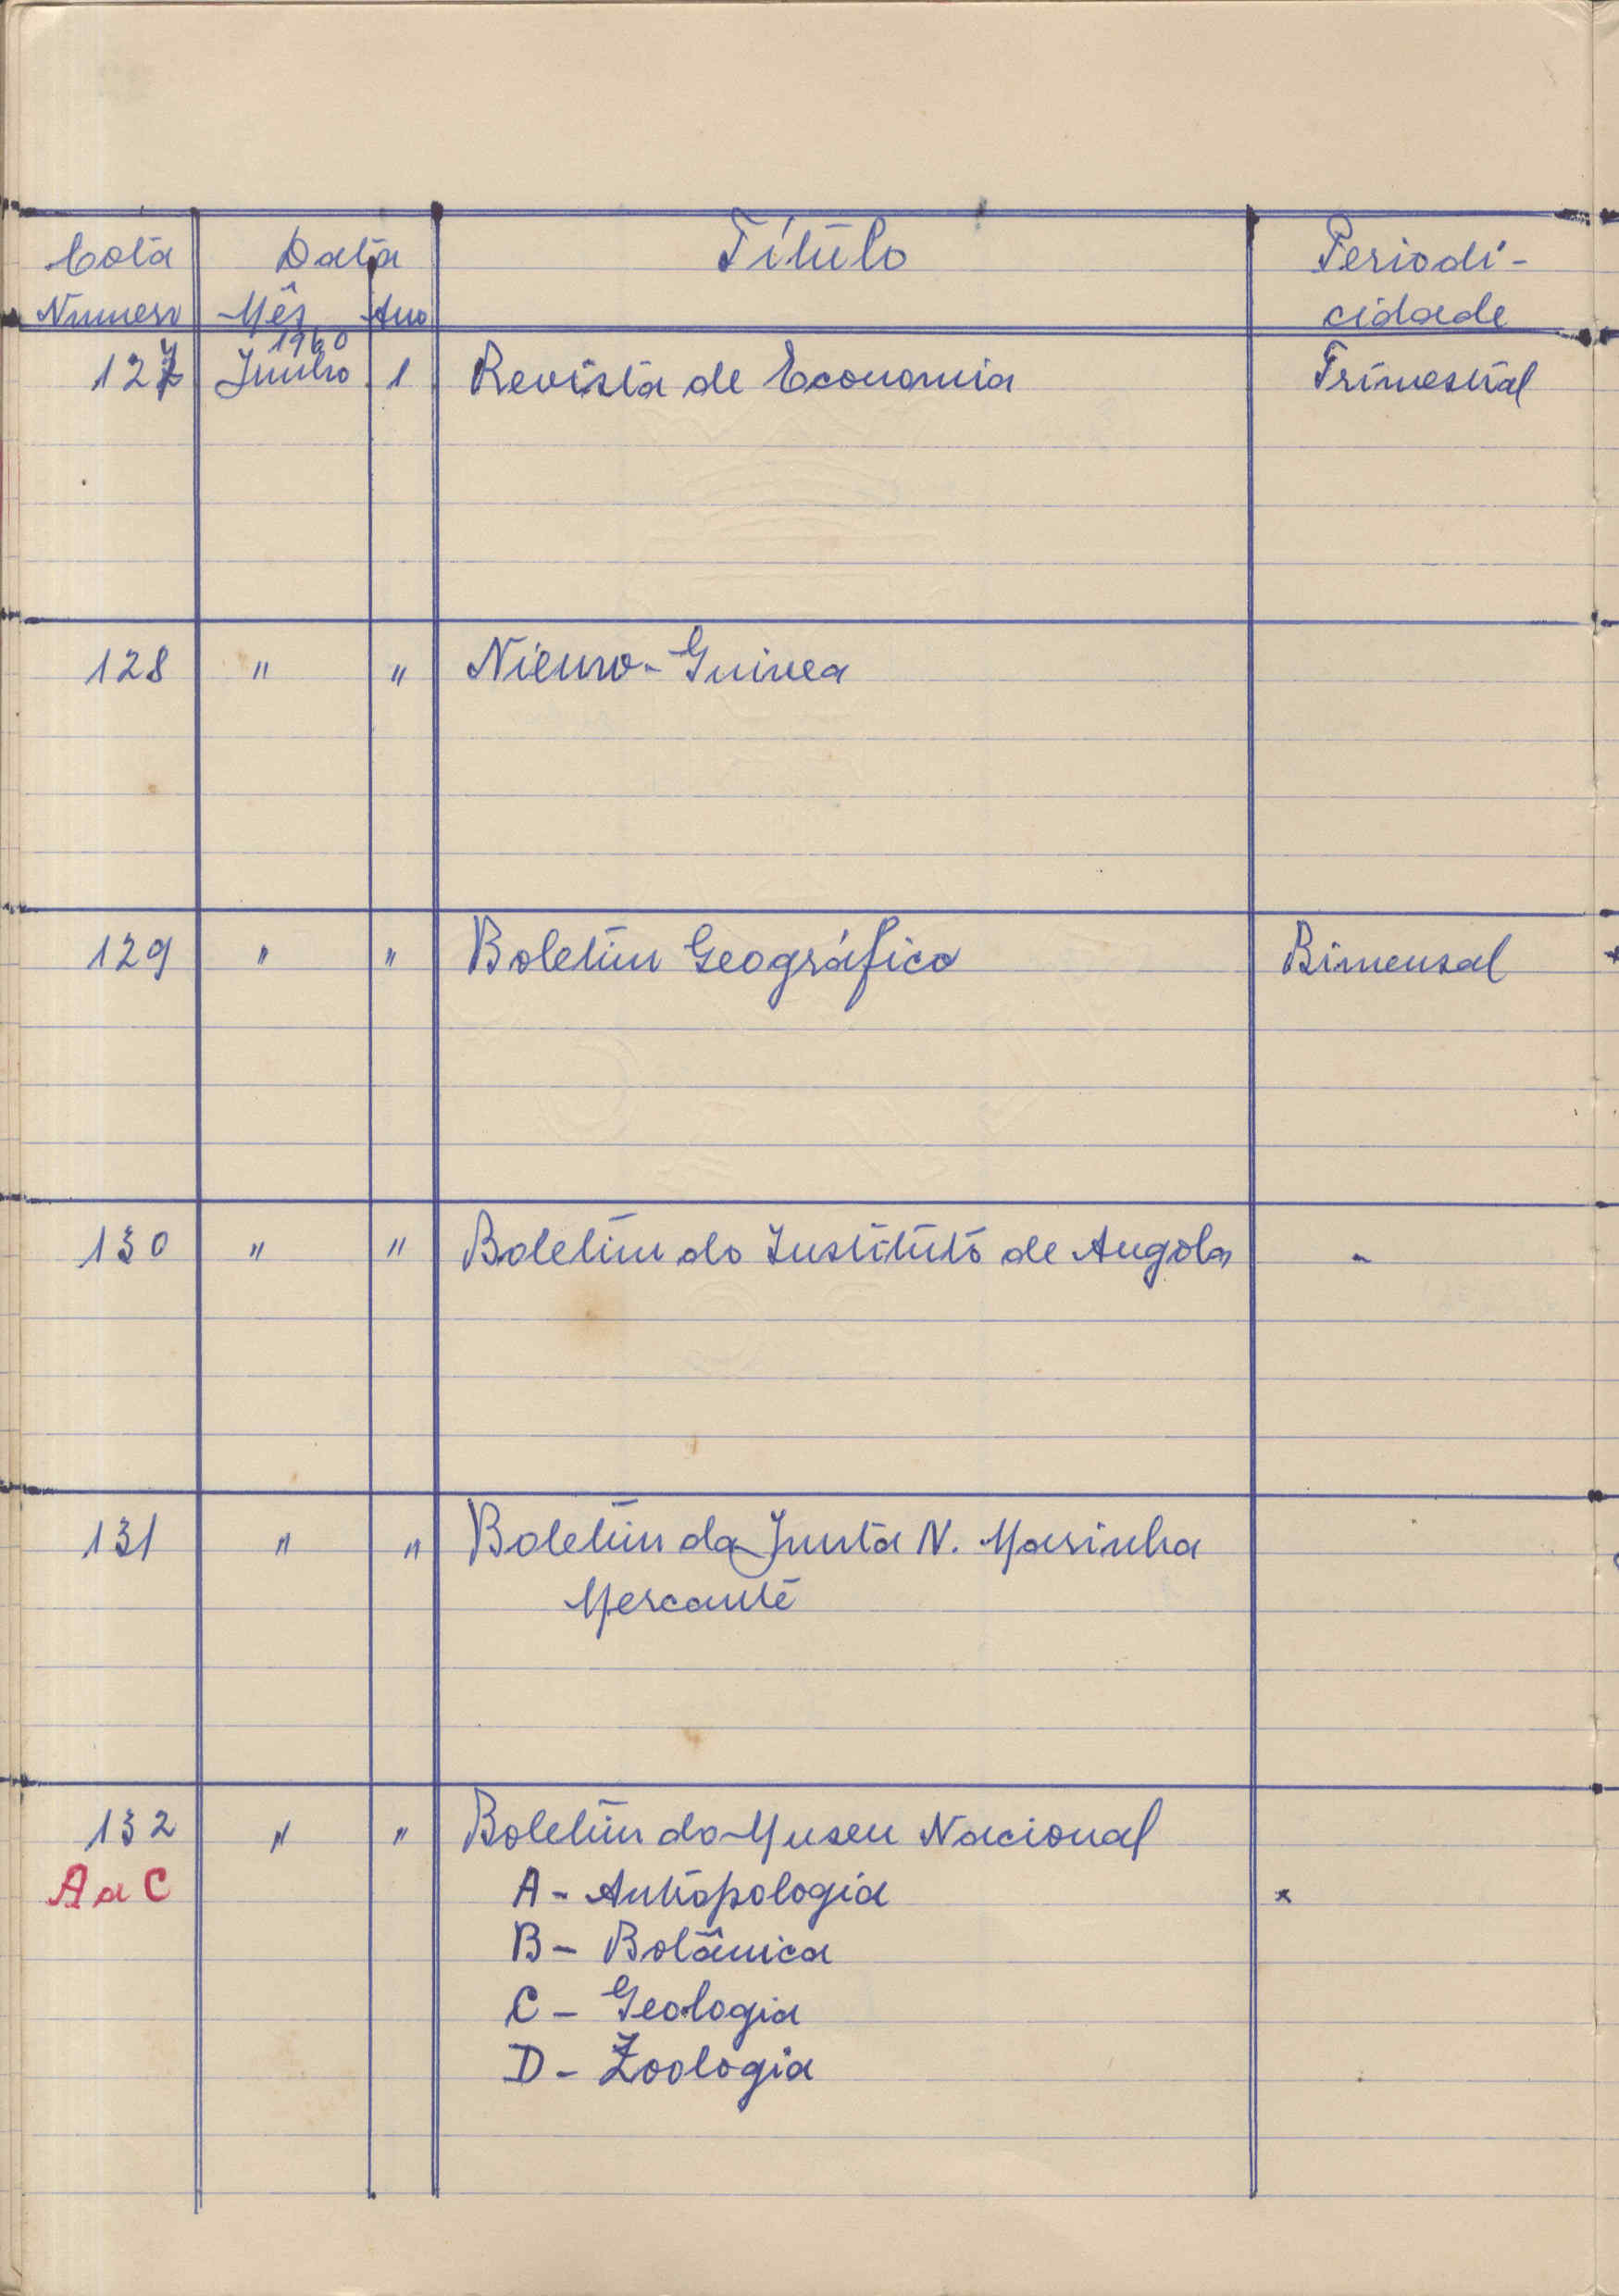 Cota Data Título Periodi-
Numero Mês Ano cidade
1960
127 Junho 1 Revista de Economia Trimestral
128 " " Nieuw-Guinea
129 " " Boletim Geográfico Bimensal
130 " " Boletim do Instituto de Angola -
131 " " Boletim da Junta N. Marinha
Mercante
132 " " Boletim do Museu Nacional
A a C A - Antropologia x
B - Botânica
C - Geologia
D - Zoologia